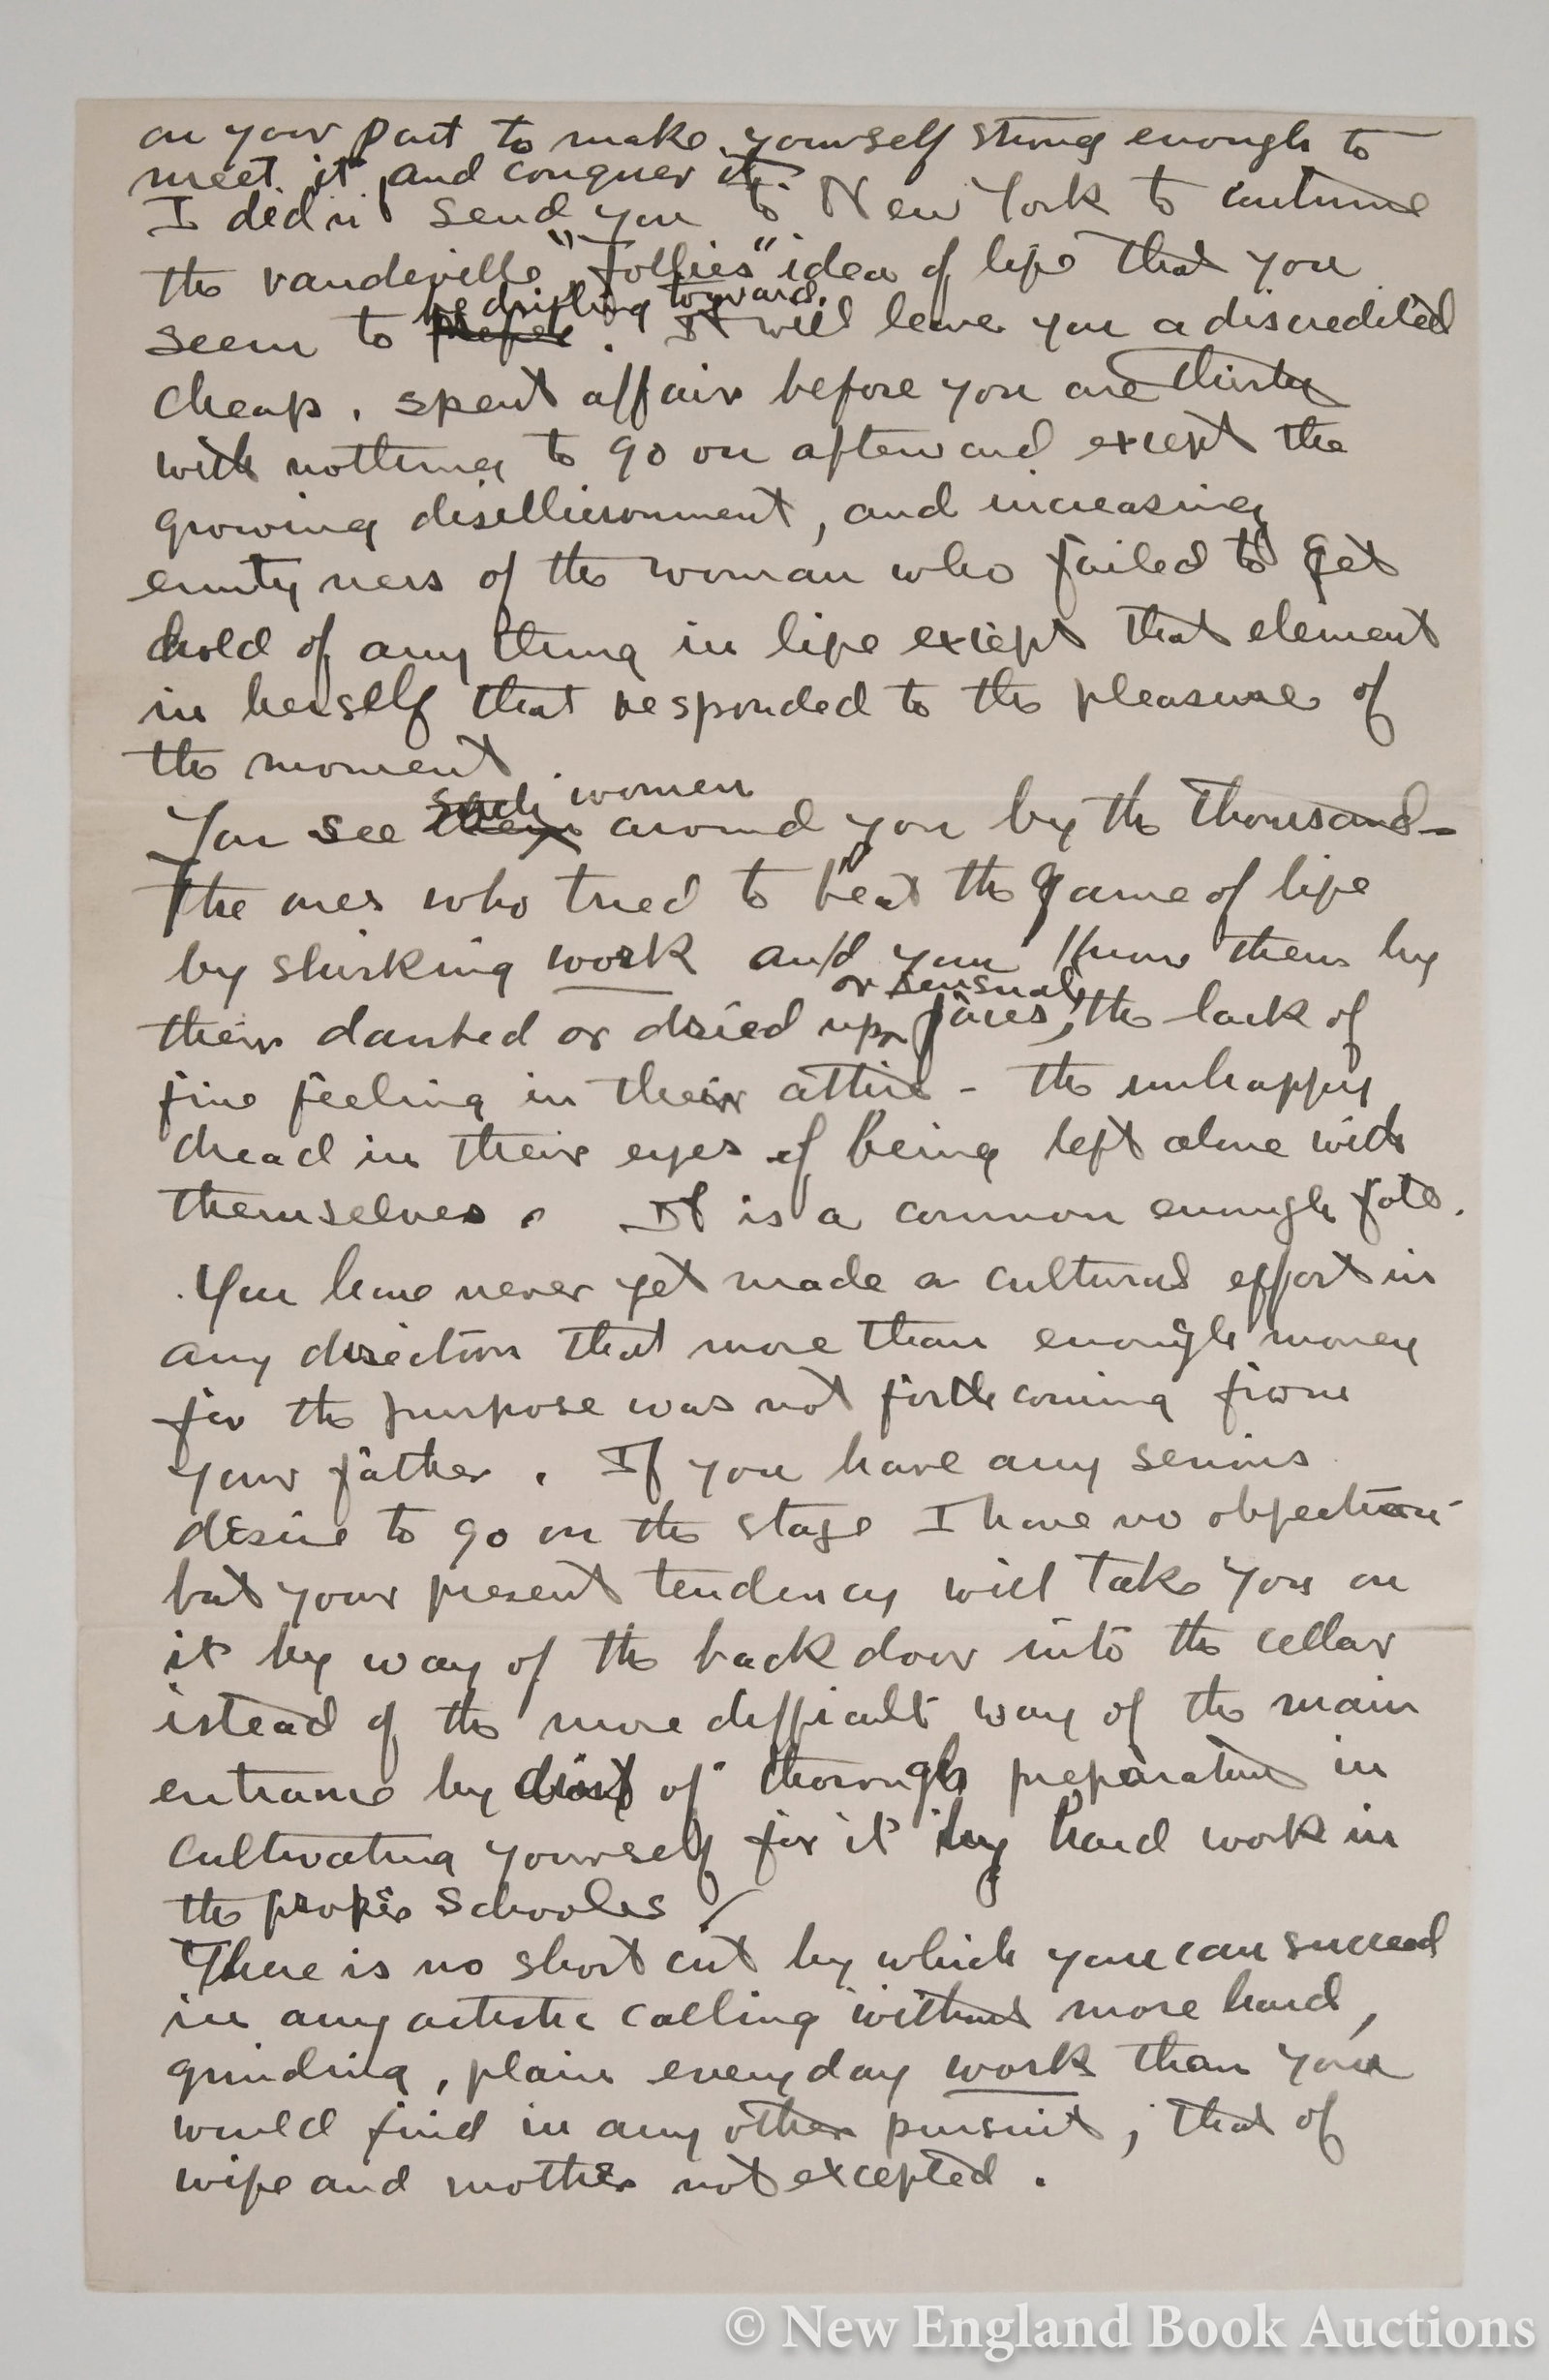 on your part to make yourself strong enough to
meet it and conquer it.
I didn't send you to New York to continue
the vaudeville "Follies" idea of life that you
be drifting toward.
seem to prefer. It will leave you a discredited
cheap, spent affair before you are thirty
with nothing to go on afterward except the
growing disillusionment, and increasing
emptyness of the woman who failed to get
hold of any thing in life except that element
in herself that responded to the pleasure of
the moment.
such women
You see them around you by the thousand -
The ones who tried to beat the game of life
by shirking work and you know them by
or sensual
their daubed or dried up faces, the lack of
fine feeling in their attire - the unhappy
dread in their eyes of being left alone with
themselves. It is a common enough fate.
You have never yet made a cultural effort in
any direction that more than enough money
for the purpose was not forthcoming from
your father. If you have any serious
desire to go on the stage I have no objection -
but your present tendency will take you on
it by way of the back door into the cellar
istead of the more difficult way of the main
entrance by dint of thorough preparation in
cultivating yourself for it by hard work in
the proper schooles /
There is no short cut by which you can succeed
in any artistic calling without more hard,
grinding, plain everyday work than you
would find in any other pursuit, that of
wife and mother not excepted.
© New England Book Auctions